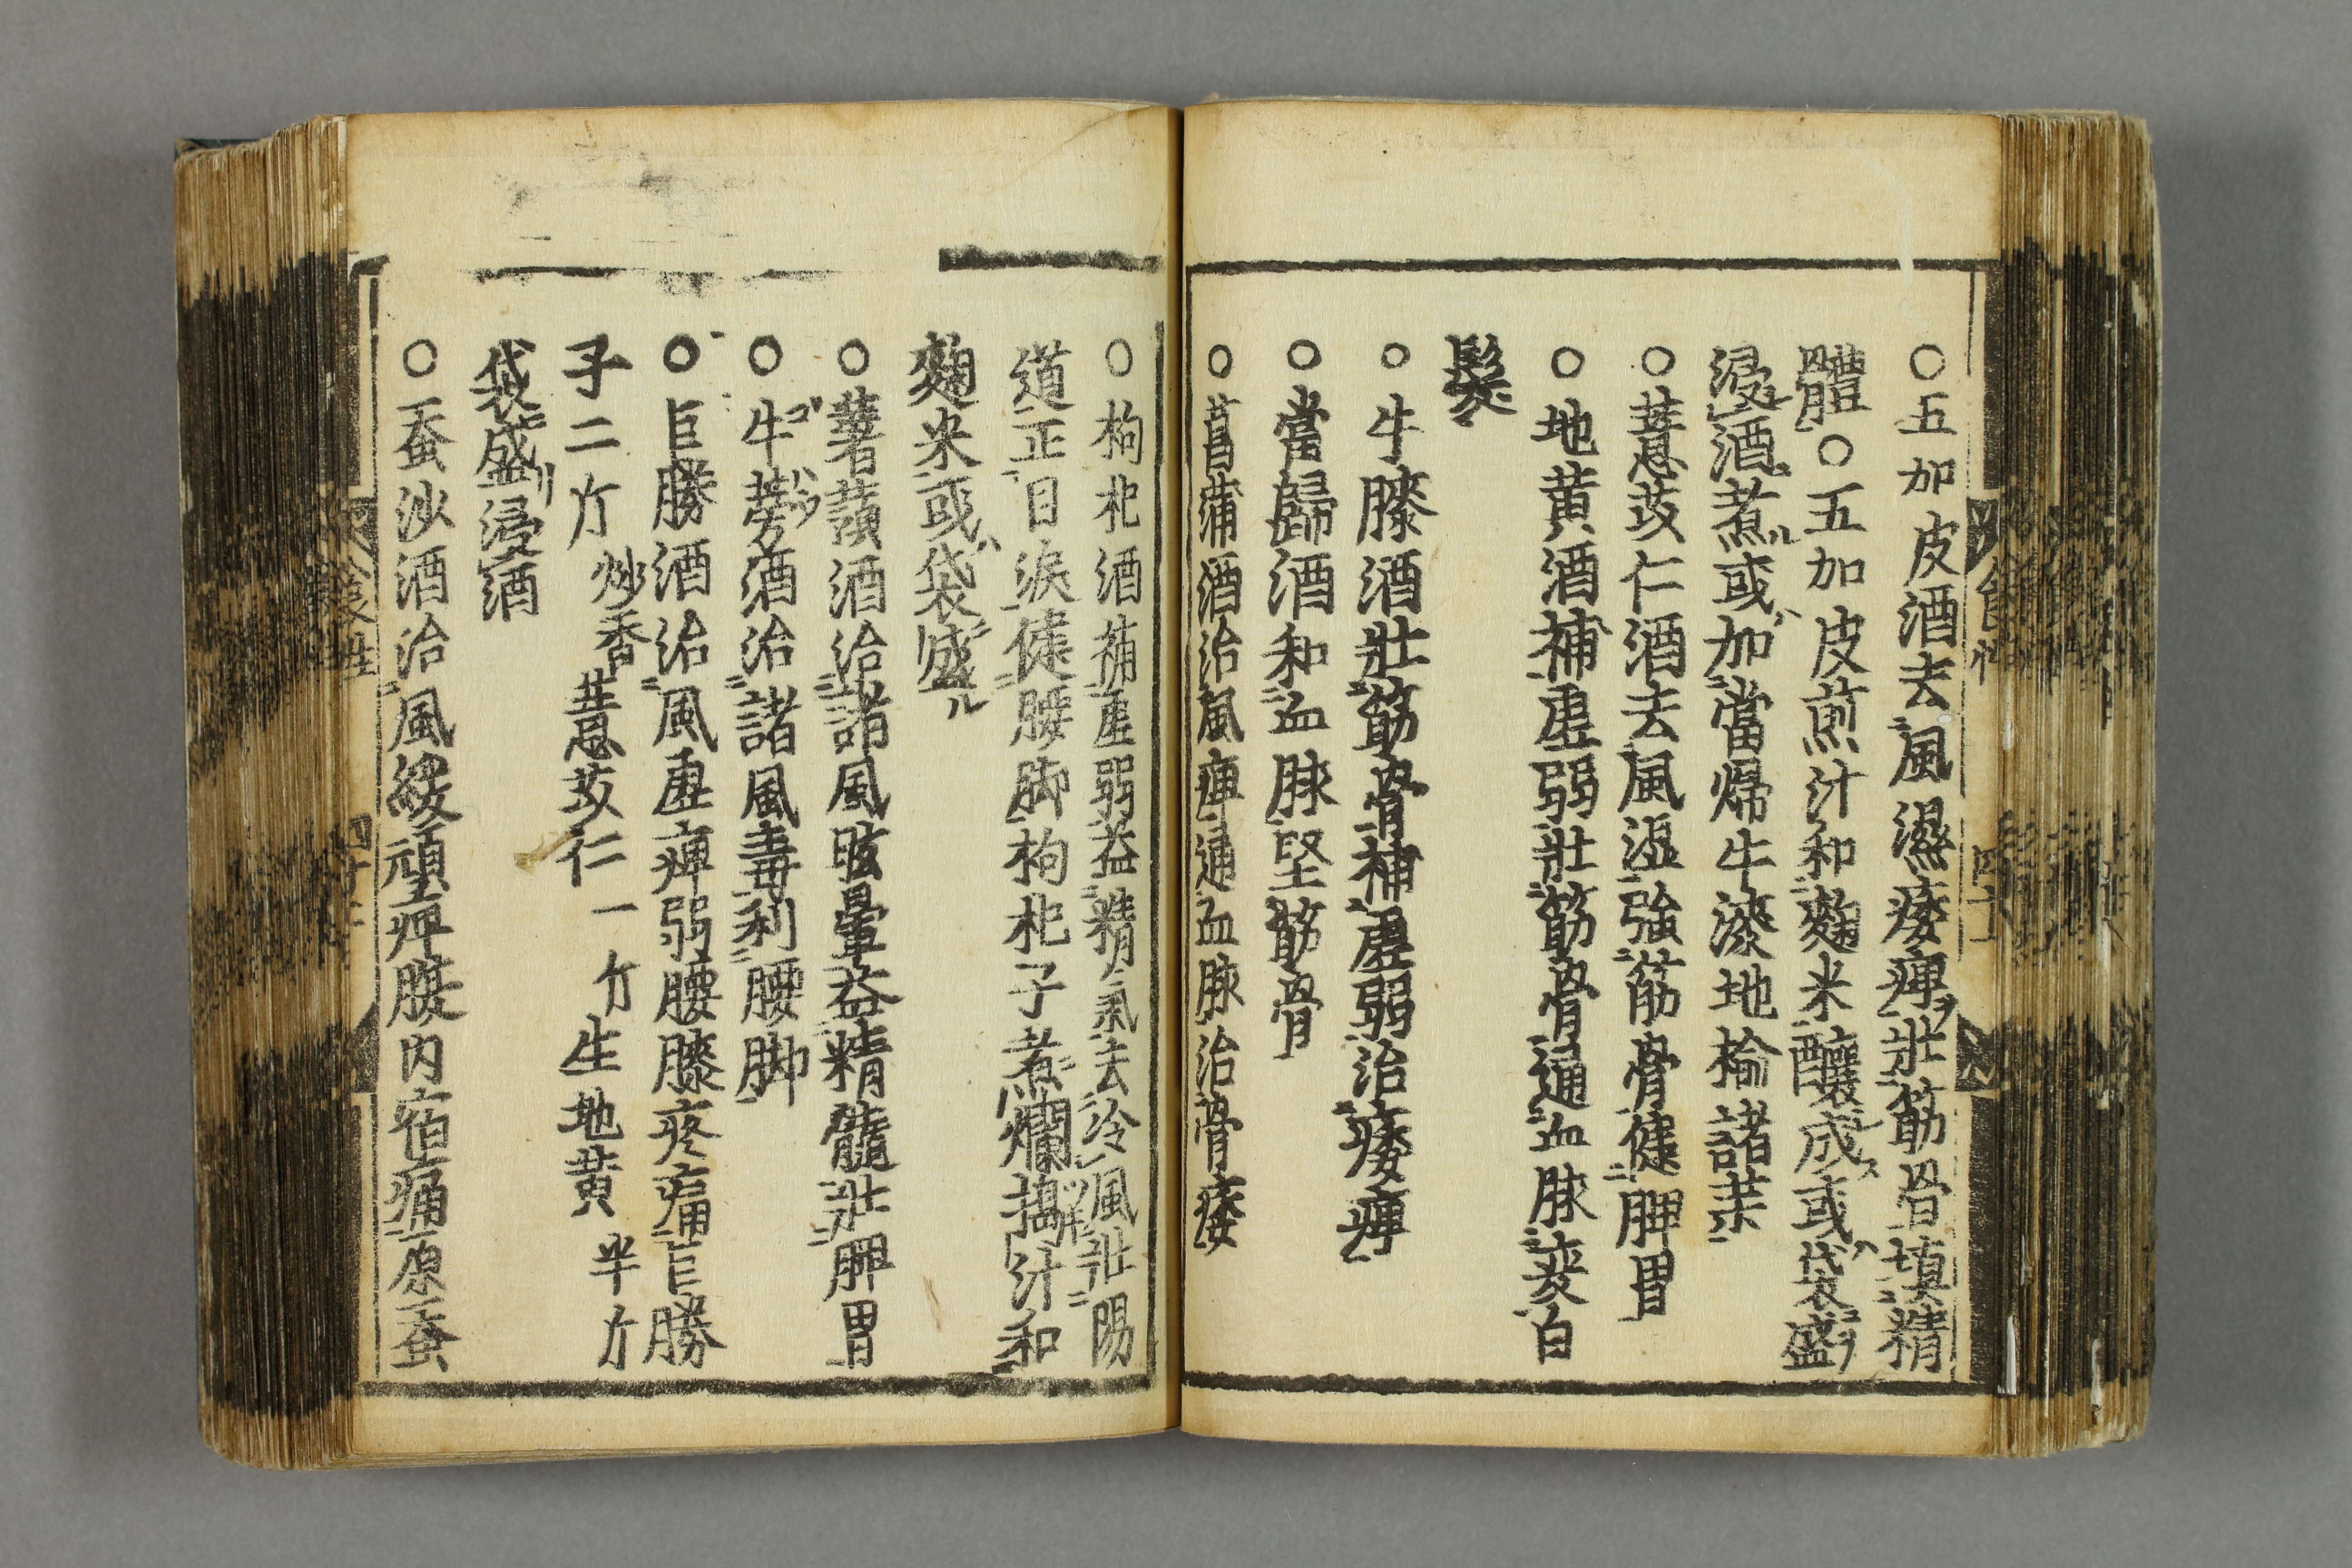 ○五加皮酒去風濕痿痺壯筋骨塡精
體○五加皮煎汁和麹米釀成或袋盛
浸酒煮或加當帰牛漆地榆諸薬
○薏苡仁酒去風湿強筋骨健脾胃
○地黄酒補虛弱壯筋骨通血脉変白
髮
○牛膝酒壯筋骨補虛弱治痿痺
○當歸酒和血脉堅筋骨
○菖蒲酒治風痺通血脉治骨痿
○枸杞酒補虛弱益精氣去冷風壯陽
道正目淚健腰脚枸杞子煮爛搗汁和
麹米或袋盛ル
○薯蕷酒治諸風眩暈益精髓壯脾胃
○牛蒡酒治諸風毒利腰脚
○巨勝酒治風虛痺弱腰膝疼痛巨勝
子二斤炒香薏苡仁一斤生地黄半斤
袋盛浸酒
○蚕沙酒治風緩頑痺腹内宿痛原蚕